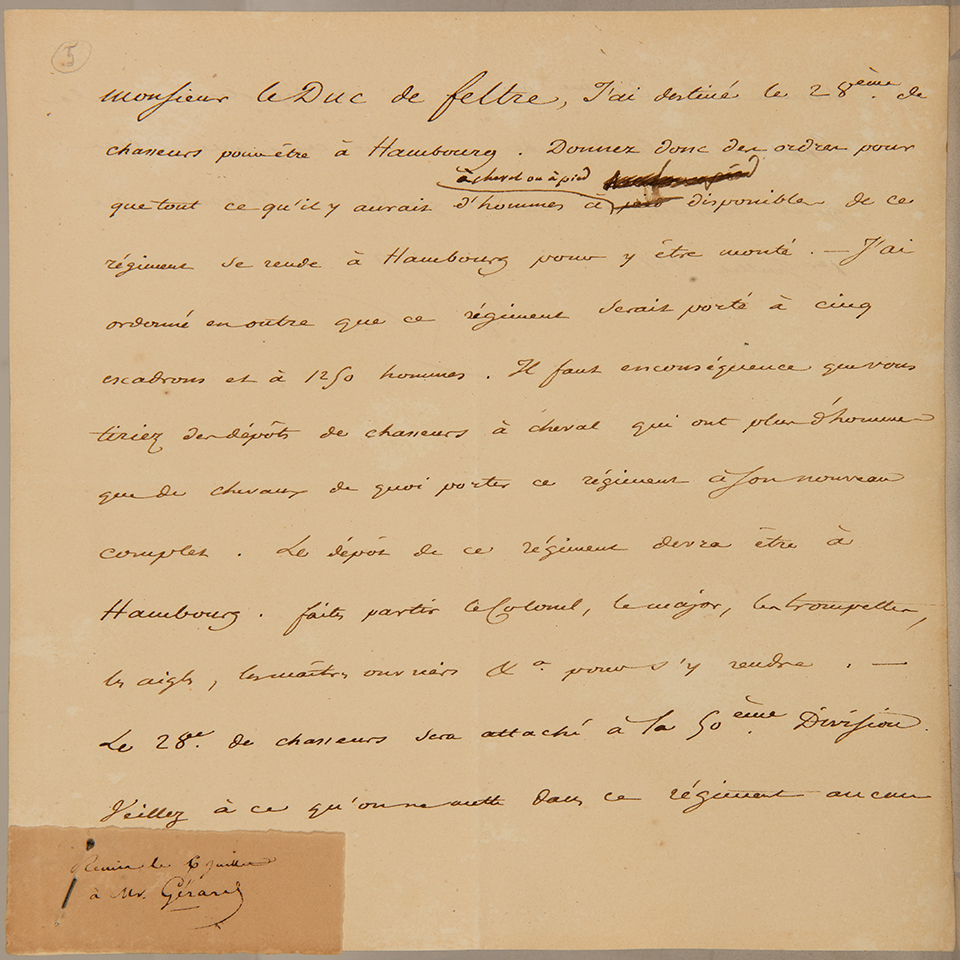 5
Monsieur le Duc de feltre, J'ai destiné le 28ème. de
chasseurs pour être à Hambourg. Donnez donc des ordres pour
à cheval ou à pied
que tout ce qu'il y aurait d'hommes à pied disponibles de ce
régiment se rende à Hambourg pour y être monté. — J'ai
ordonné en outre que ce régiment serait porté à cinq
escadrons et à 1250 hommes. Il faut en conséquence que vous
tiriez des dépôts de chasseurs à cheval qui ont plus d'hommes
que de chevaux de quoi porter ce régiment à son nouveau
complet. Le dépôt de ce régiment devra être à
Hambourg. faites partir le Colonel, le major, les trompettes,
les aigles, les maîtres ouvriers &a pour s'y rendre. —
Le 28e. de chasseurs sera attaché à la 50ème. Division.
Veillez à ce qu'on ne mette dans ce régiment aucun
Remis le 6 juillet
à Mr. Gérard